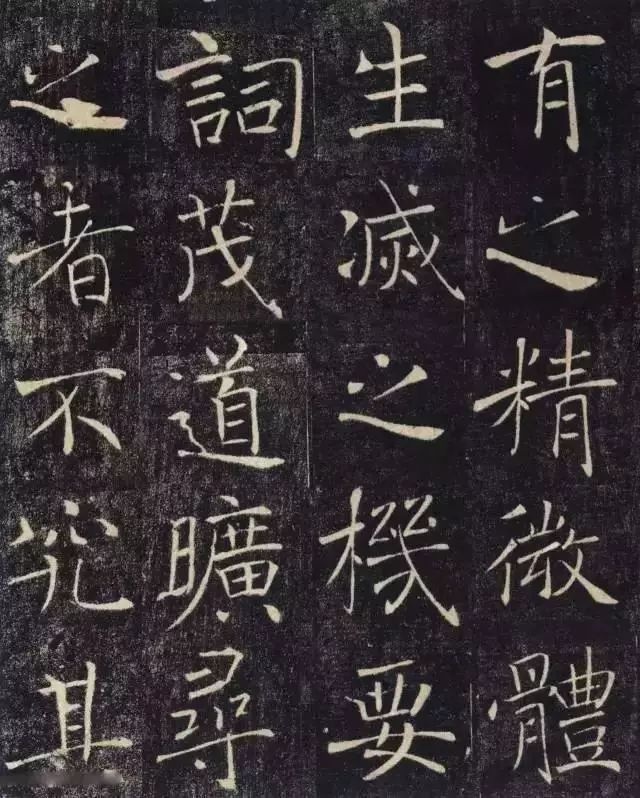 有之精微體
生滅之機要
詞茂道曠尋
之者不究其